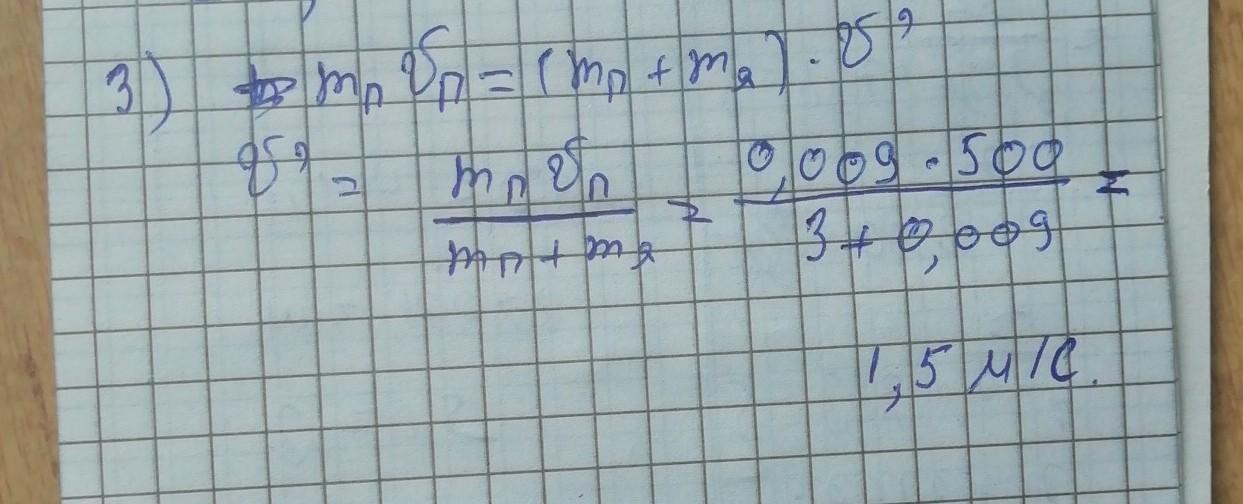 3) mп υп = (mп + mя) · υ'
υ' = mп υп / mп + mя = 0,009 · 500 / 3 + 0,009 =
1,5 м/с.